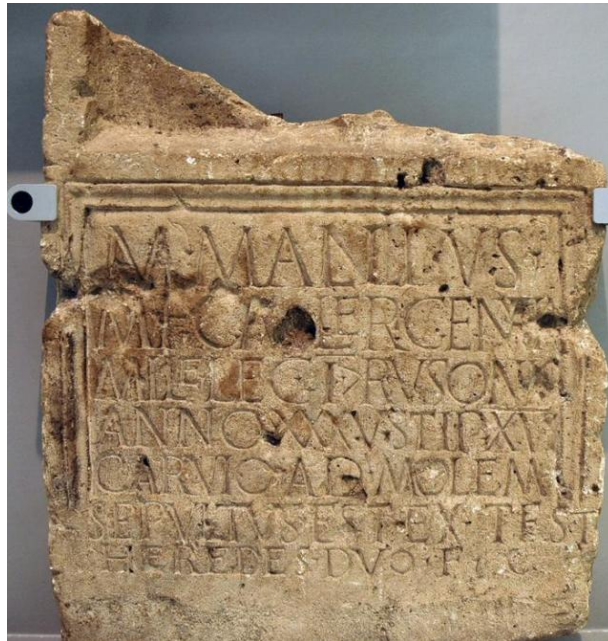 M·MALLIVS
M·F·GALER·GENVA
MILE·LEG·I·RVSONIS
ANNO·XXXV·STIP·XV
CARVIO·AD·MOLEM
SEPVLTVS·EST·EX·TEST
HEREDES·DVO·F·C